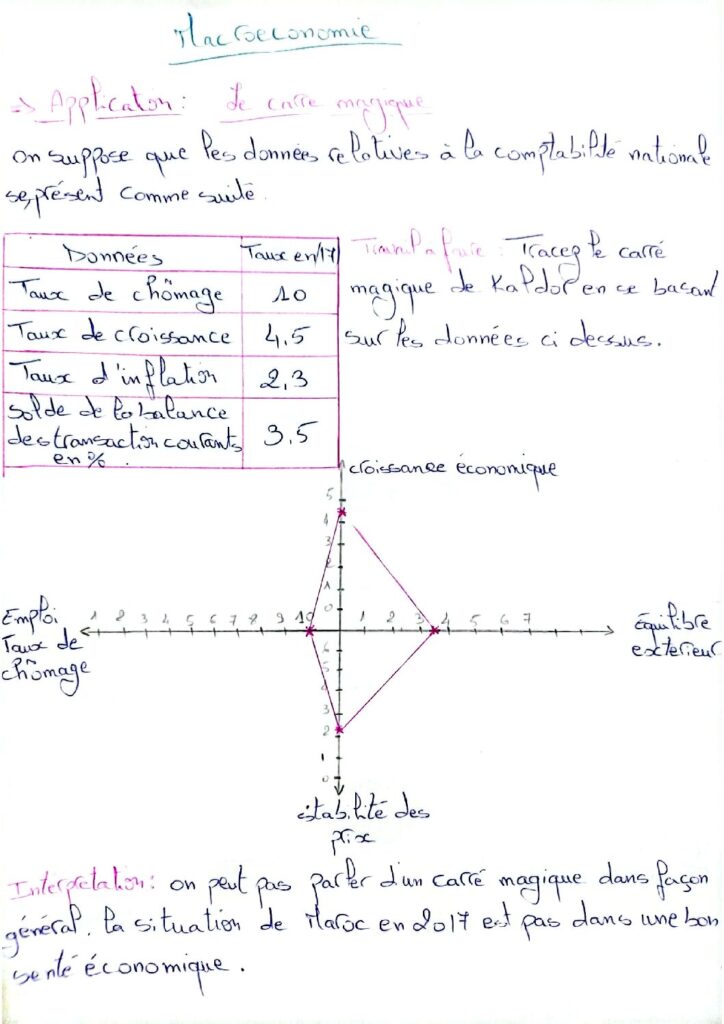 Macroeconomie
⇒ Application: Le carré magique
On suppose que les données relatives à la comptabilité nationale
se présent comme suite.
Données Taux en/17
Taux de chômage 10
Taux de croissance 4,5
Taux d'inflation 2,3
Solde de la balance
des transaction courants 3,5
en %.
Travail a faire: Tracez le carré
magique de Kaldor en se basant
sur les données ci dessus.
croissance économique
5
4
3
2
1
0
Emploi 1 2 3 4 5 6 7 8 9 10 1 2 3 4 5 6 7 équilibre
Taux de exterieur
chômage
6
5
4
3
2
1
0
éstabilité des
prix
Interpretation: on peut pas parler d'un carré magique dans façon
général. la situation de Maroc en 2017 est pas dans une bon
senté économique.